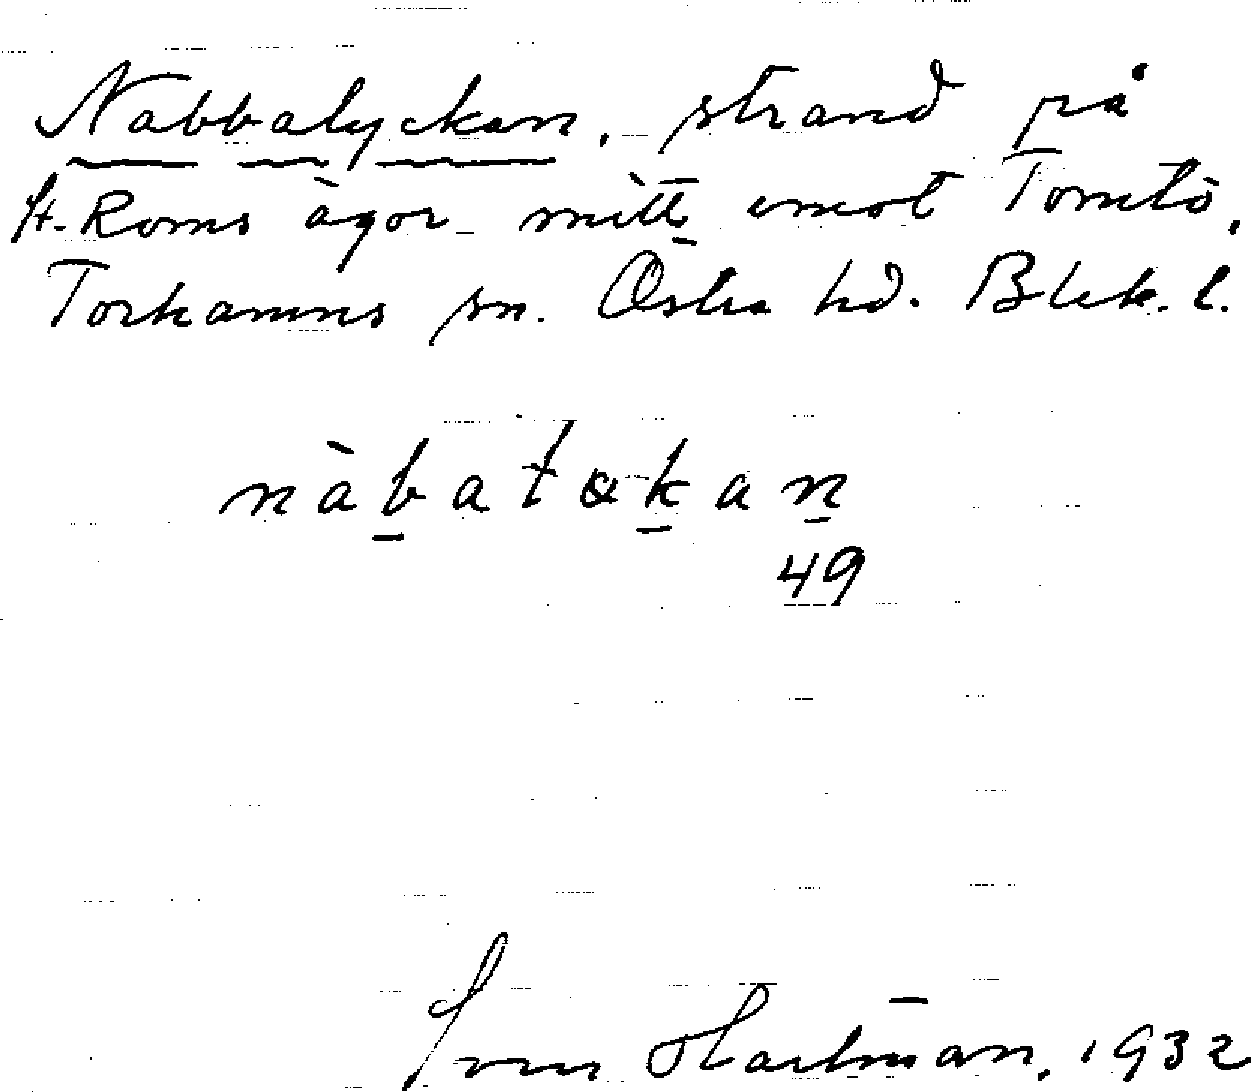 Nabbalyckan, strand på
St. Roms ägor mitt emot Tomtö,
Torhamns sn. Östra hd. Blek. l.
nàbatøkan
49
Sven Hartman, 1932